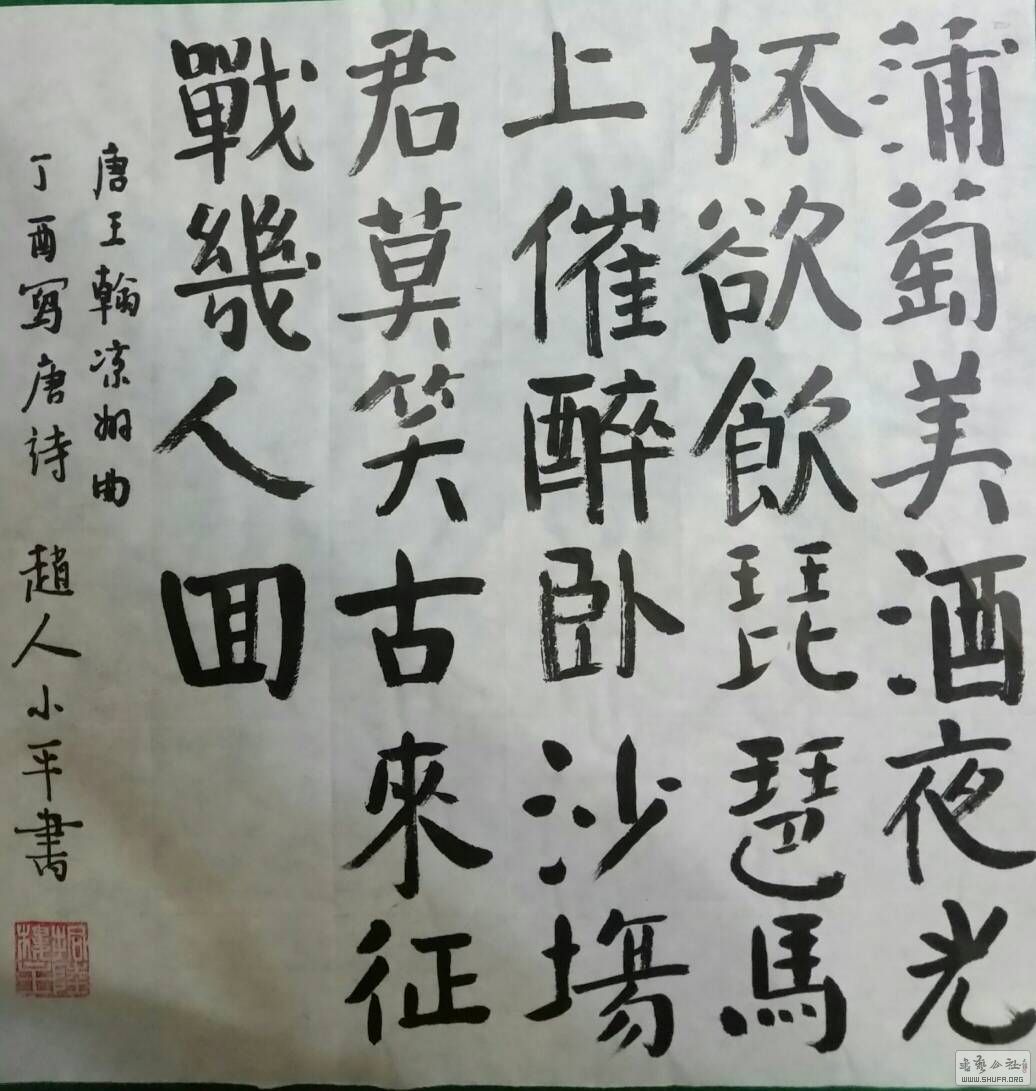 蒲萄美酒夜光
杯欲飲琵琶馬
上催醉卧沙場
君莫笑古來征
戰幾人回
唐王翰凉州曲
丁酉寫唐诗 趙人小平書
WWW.SHUFA.ORG